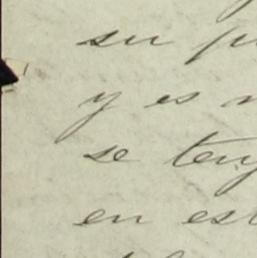 su p
y es
se ten
en est